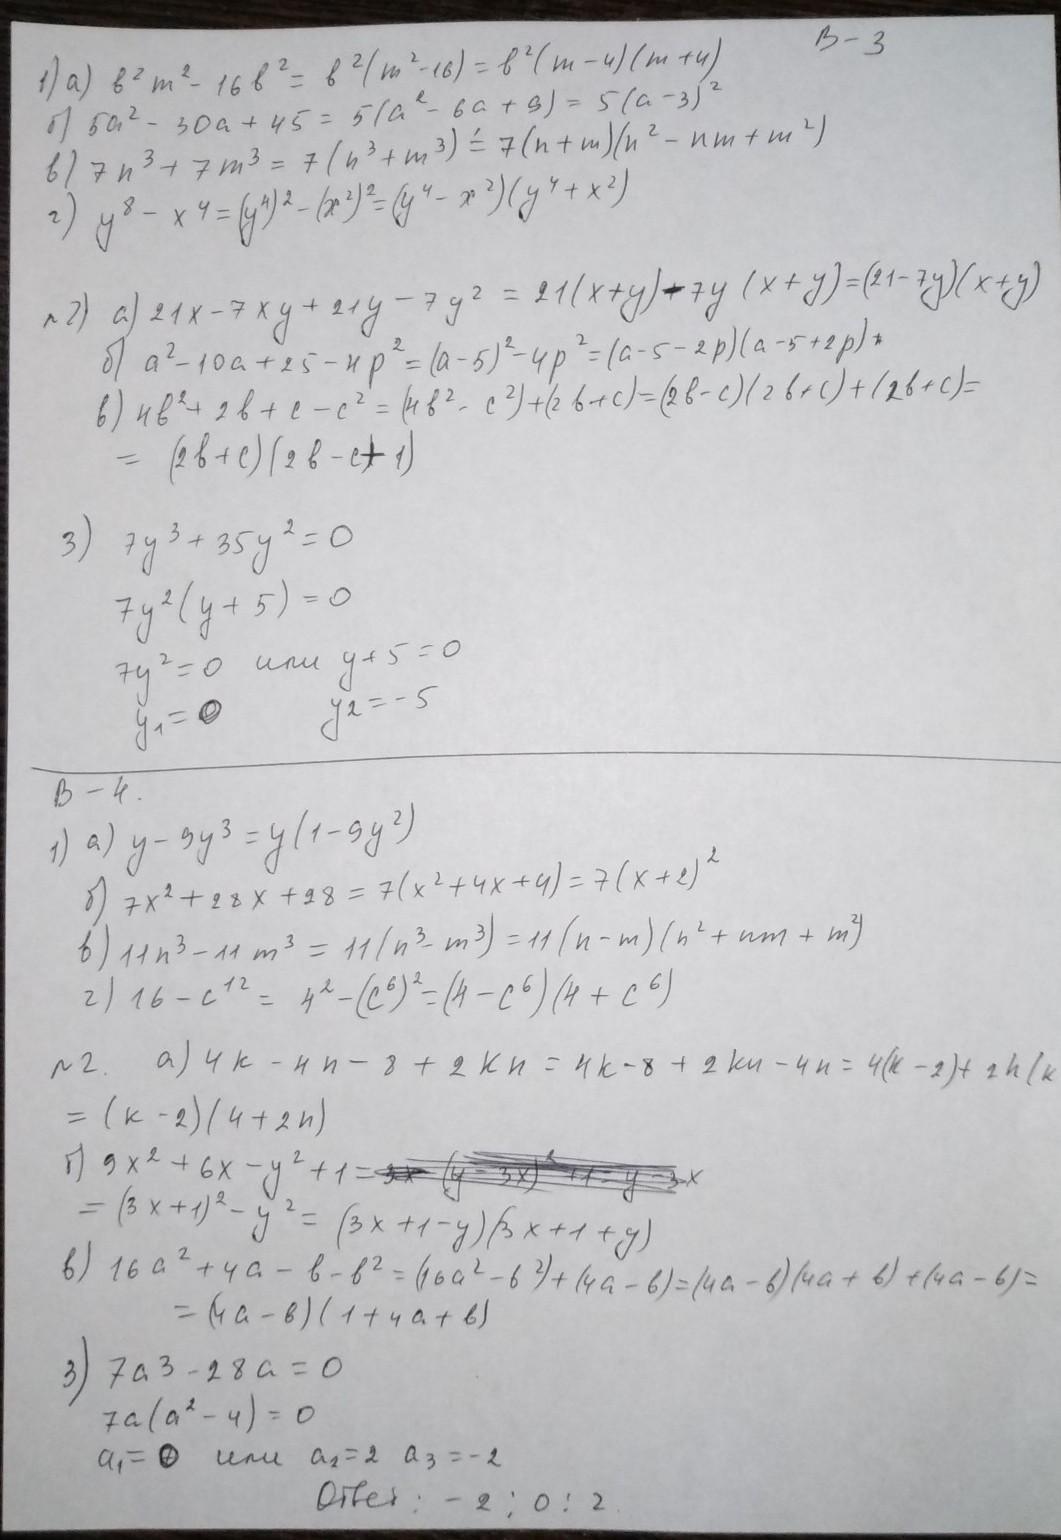 В-3
1) а) b²m² - 16b² = b²(m²-16) = b²(m-4)(m+4)
б) 5a² - 30a + 45 = 5(a² - 6a + 9) = 5(a-3)²
в) 7n³ + 7m³ = 7(n³+m³) = 7(n+m)(n² - nm + m²)
г) y⁸ - x⁴ = (y⁴)² - (x²)² = (y⁴ - x²)(y⁴ + x²)
№2) а) 21x - 7xy + 21y - 7y² = 21(x+y) - 7y(x+y) = (21-7y)(x+y)
б) a² - 10a + 25 - 4p² = (a-5)² - 4p² = (a-5-2p)(a-5+2p)
в) 4b² + 2b + c - c² = (4b² - c²) + (2b+c) = (2b-c)(2b+c) + (2b+c) =
= (2b+c)(2b-c+1)
3) 7y³ + 35y² = 0
7y²(y+5) = 0
7y² = 0 или y+5 = 0
y₁ = 0 y₂ = -5
В-4.
1) а) y - 9y³ = y(1-9y²)
б) 7x² + 28x + 28 = 7(x²+4x+4) = 7(x+2)²
в) 11n³ - 11m³ = 11(n³-m³) = 11(n-m)(n² + nm + m²)
г) 16 - c¹² = 4² - (c⁶)² = (4-c⁶)(4+c⁶)
№2. а) 4k - 4n - 8 + 2kn = 4k-8 + 2kn - 4n = 4(k-2) + 2n(k
= (k-2)(4+2n)
б) 9x² + 6x - y² + 1 =
= (3x+1)² - y² = (3x+1-y)(3x+1+y)
в) 16a² + 4a - b - b² = (16a² - b²) + (4a-b) = (4a-b)(4a+b) + (4a-b) =
= (4a-b)(1+4a+b)
3) 7a3 - 28a = 0
7a(a²-4) = 0
a₁ = 0 или a₂ = 2 a₃ = -2
Ответ: -2; 0; 2.